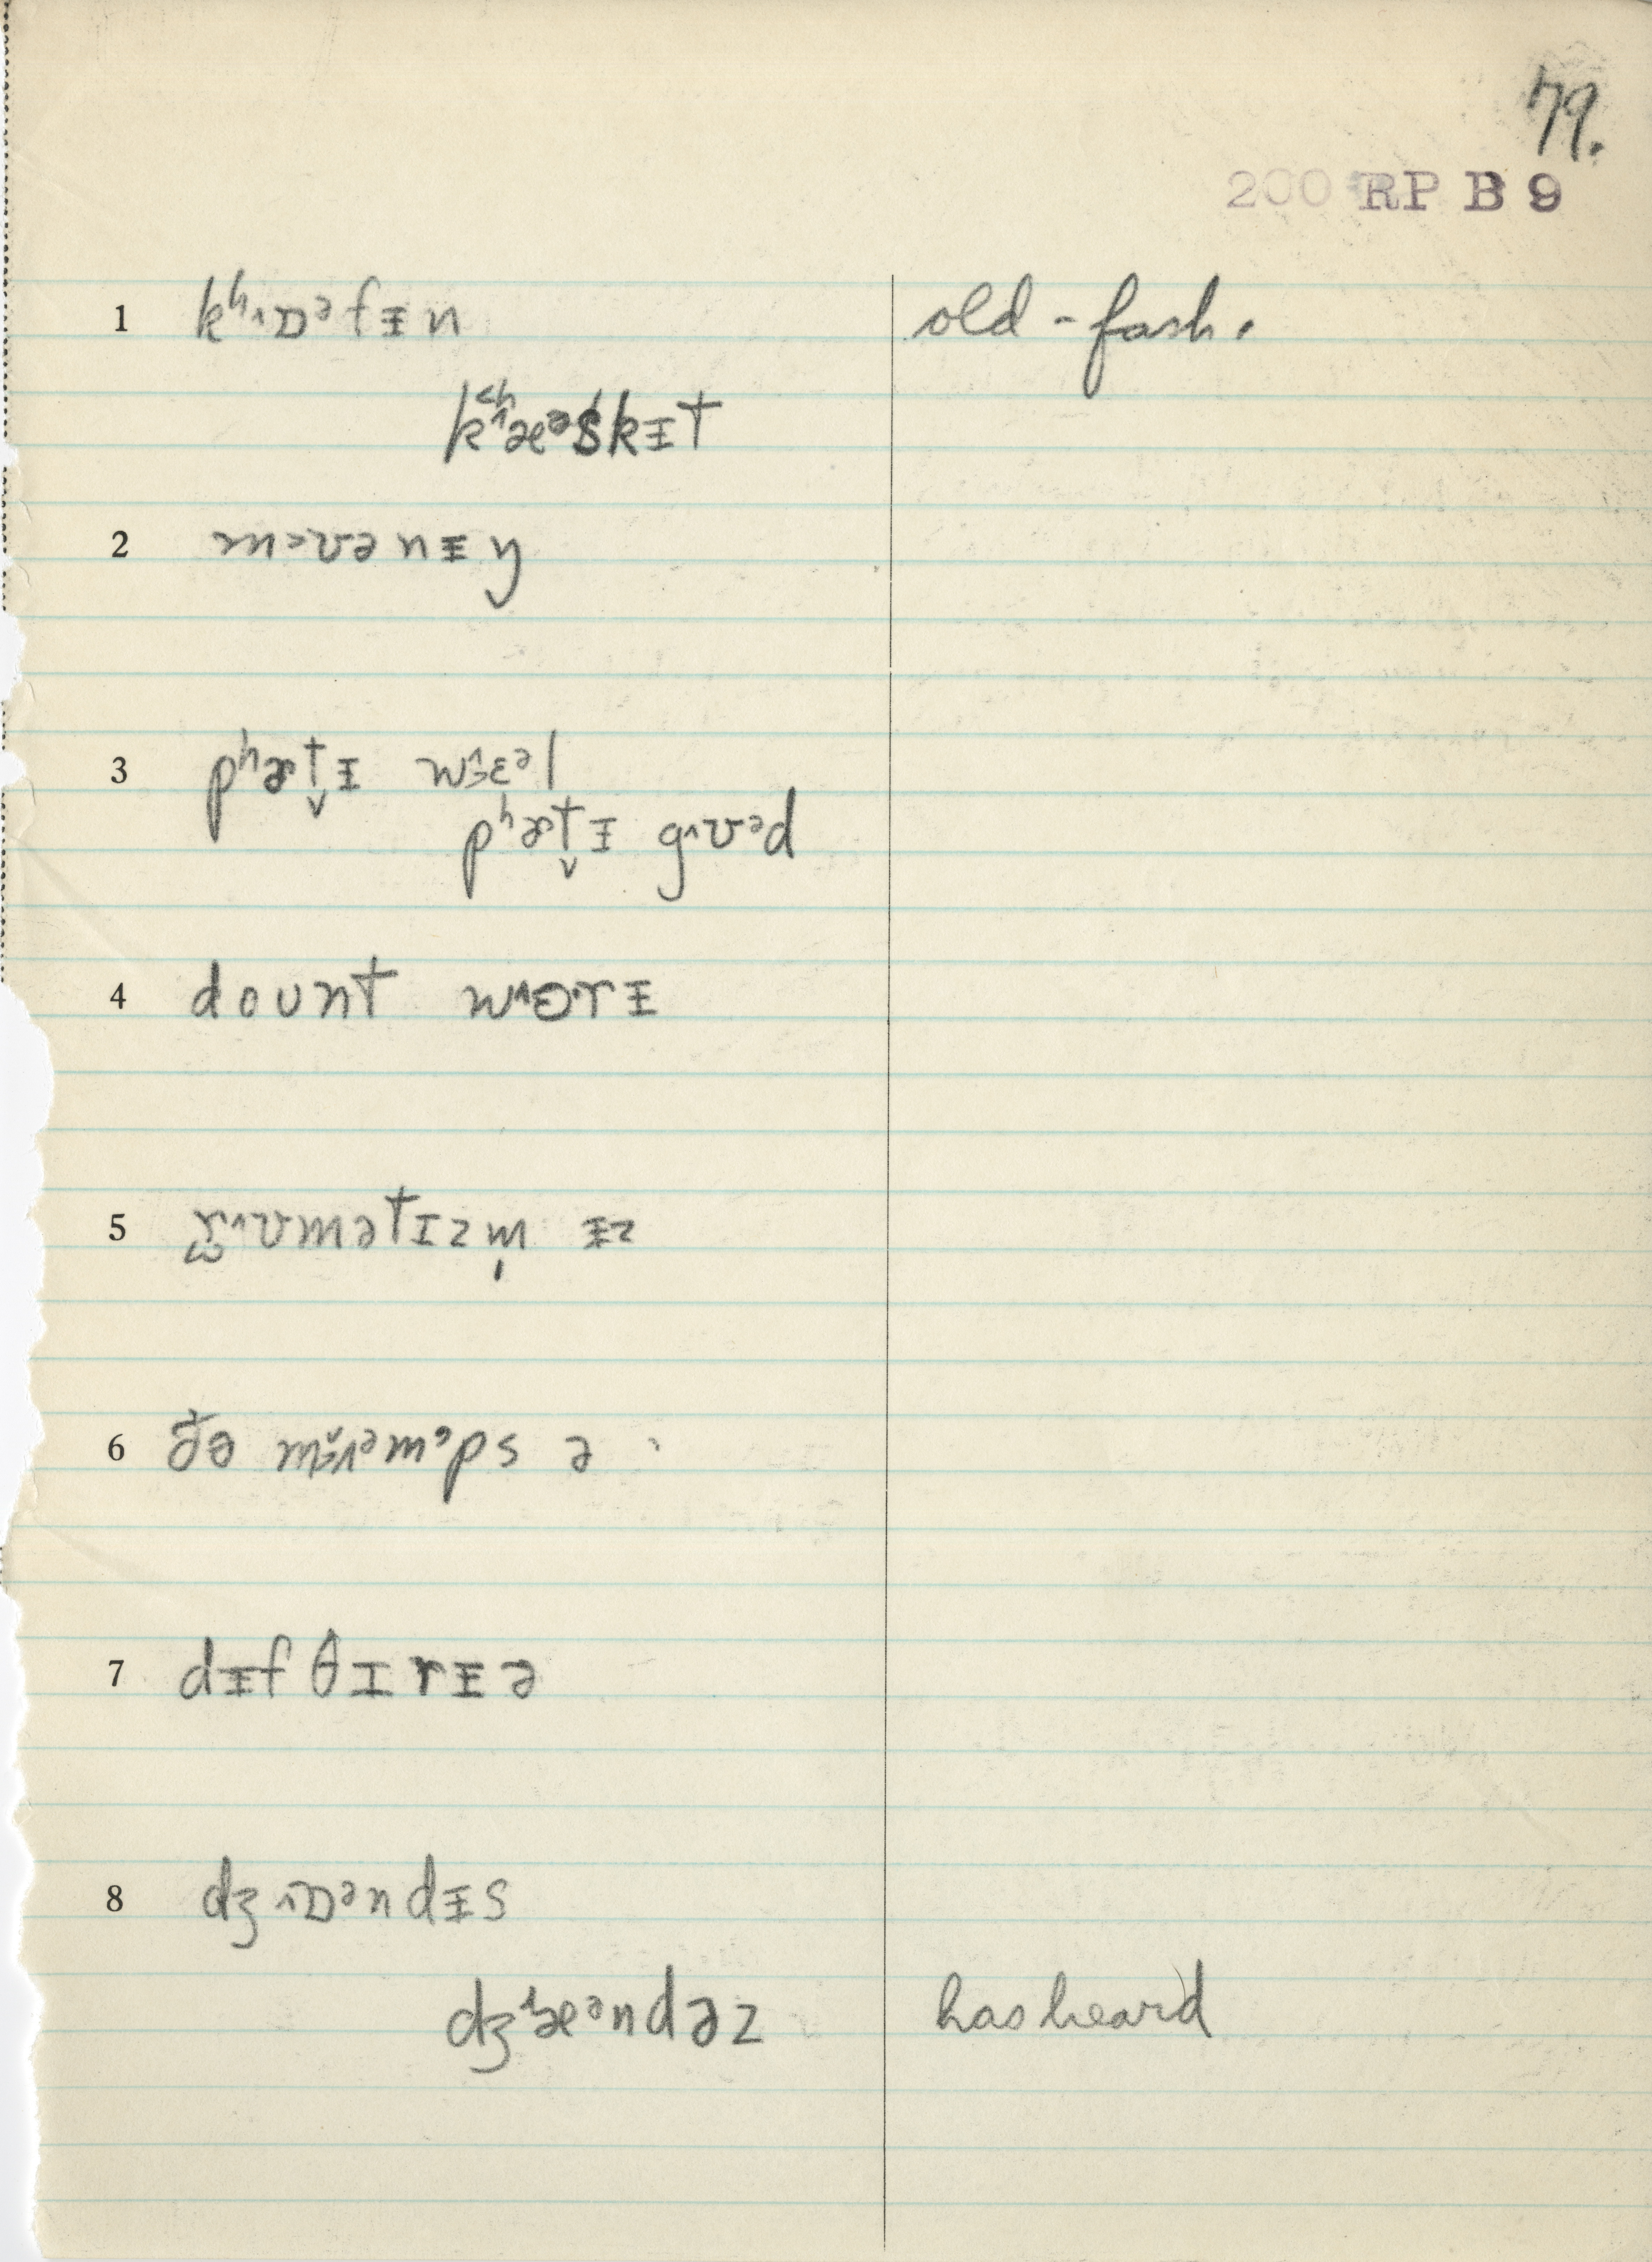 79.
200 RP B 9
1 kʰ˄ɒᵊfɪ̵n old-fash.
kʰæᵊskɪ̵t
2 m˃ʊənɪ̵y
3 pʰɚt̬ɪ̵ wɛᵊl
pʰɚt̬ɪ̵ g˄ʊᵊd
4 dount wɜ˞rɪ̵
5 r̫˄ʊmətɪzm̩ ɪ̵z
6 ðə mʌᵊmᵊps ə
7 dɪ̵fθɪrɪ̵ə
8 dʒ˄ɒᵊndɪ̵s
dʒæᵊndəz has heard